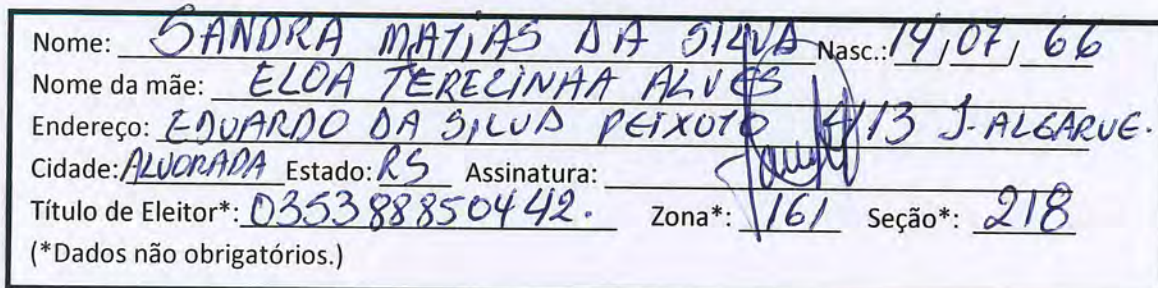 Nome: SANDRA MATIAS DA SILVA Nasc.: 14/07/66
Nome da mãe: ELOA TEREZINHA ALVES
Endereço: EDUARDO DA SILVA PEIXOTO 413 J-ALGARVE.
Cidade: ALVORADA Estado: RS Assinatura:
Título de Eleitor*: 035388850442. Zona*: 161 Seção*: 218
(*Dados não obrigatórios.)